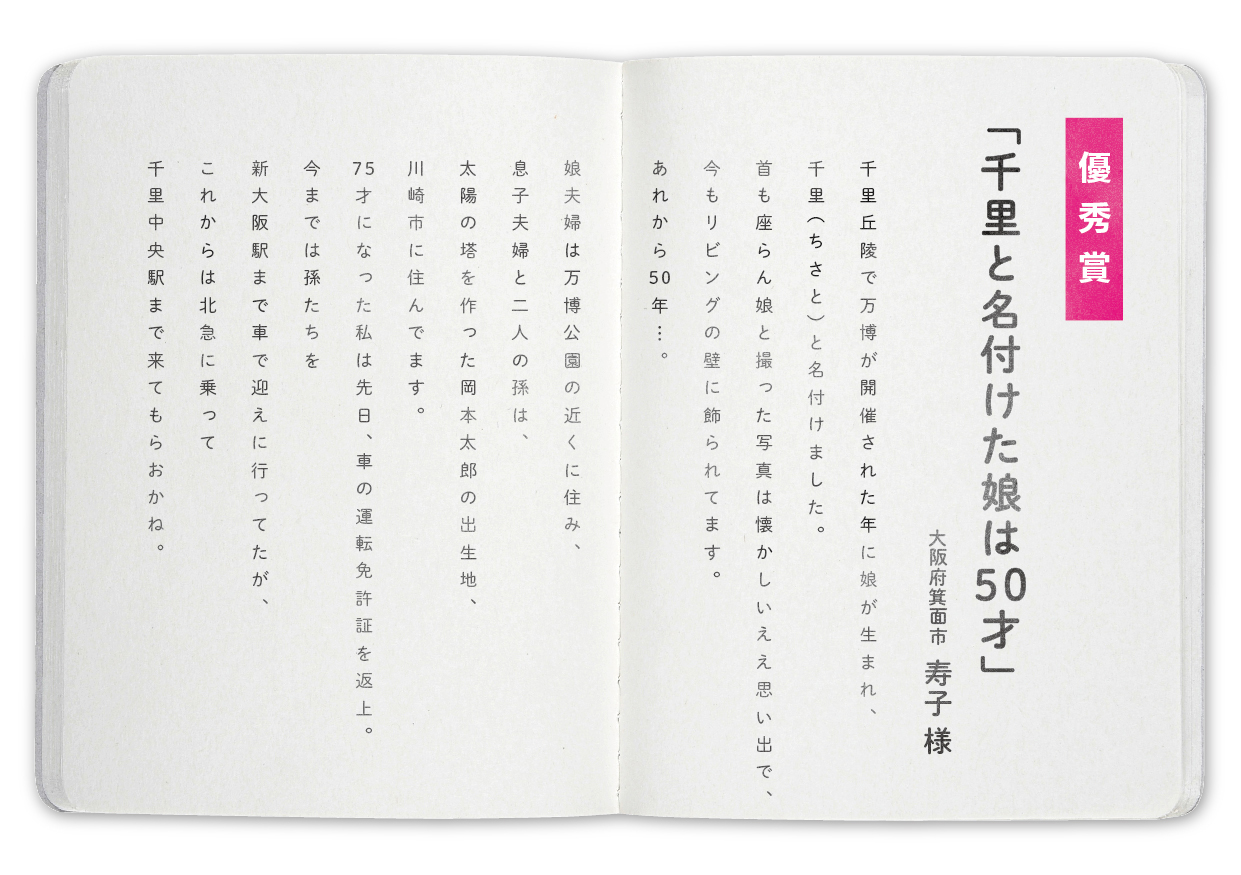 優秀賞
「千里と名付けた娘は50才」
大阪府箕面市 寿子 様
千里丘陵で万博が開催された年に娘が生まれ、
千里(ちさと)と名付けました。
首も座らん娘と撮った写真は懐かしいええ思い出で、
今もリビングの壁に飾られてます。
あれから50年…。
娘夫婦は万博公園の近くに住み、
息子夫婦と二人の孫は、
太陽の塔を作った岡本太郎の出生地、
川崎市に住んでます。
75才になった私は先日、車の運転免許証を返上。
今までは孫たちを
新大阪駅まで車で迎えに行ってたが、
これからは北急に乗って
千里中央駅まで来てもらおかね。